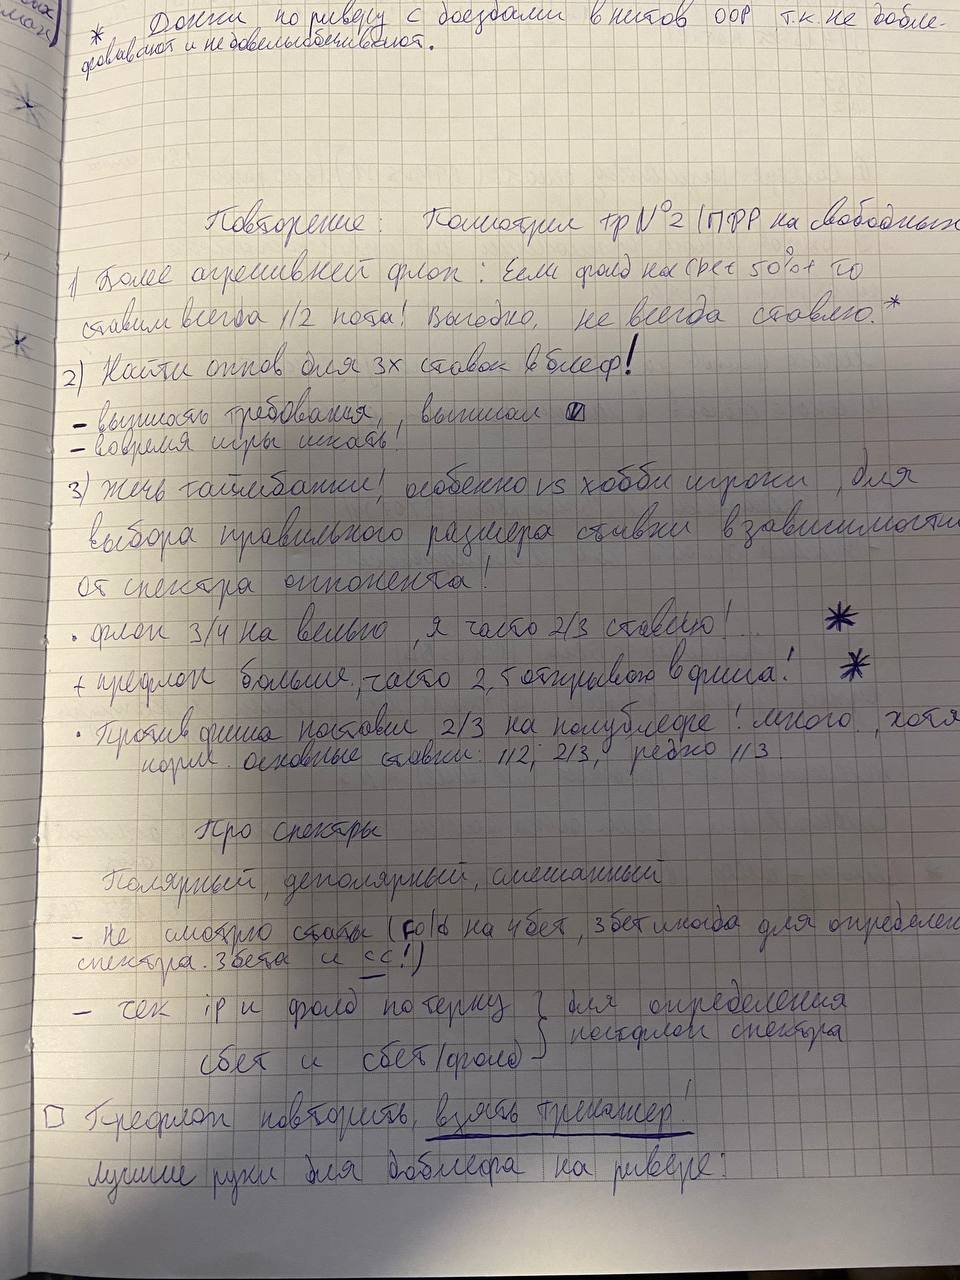 * Донки по риверу с доездами в нитов ООР т.к. не добле-
фовывают и не довелью
Повторение: Посмотрел тр №2 (ПФР на свободных
1) Более агрессивней флоп: Если фолд на cbet 50%+ то
ставим всегда 1/2 пота! Выгодно, не всегда ставлю.*
2) Найти оппов для 3х ставок в блеф!
- выписать требования, выписал ☑
- вовремя игры искать!
3) Жечь таймбанки! особенно vs хобби игроки, для
выбора правильного размера ставки в зависимости
от спектра оппонента!
· флоп 3/4 на велью, я часто 2/3 ставлю! *
+ префлоп больше, часто 2,5 открываю в фиша! *
· Против фиша поставил 2/3 на полублефе! много, хотя
норм. основные ставки: 1/2; 2/3, редко 1/3.
Про спектры
Полярный, деполярный, смешанный
- не смотрю статы (fold на 4бет, 3бет иногда для определен
спектра 3бета и cc!)
- чек ip и фолд по терну } для определения
сбет и сбет/фолд } постфлоп спектра
□ Префлоп повторить, взять тренажер!
Лучшие руки для доблефа на ривере: